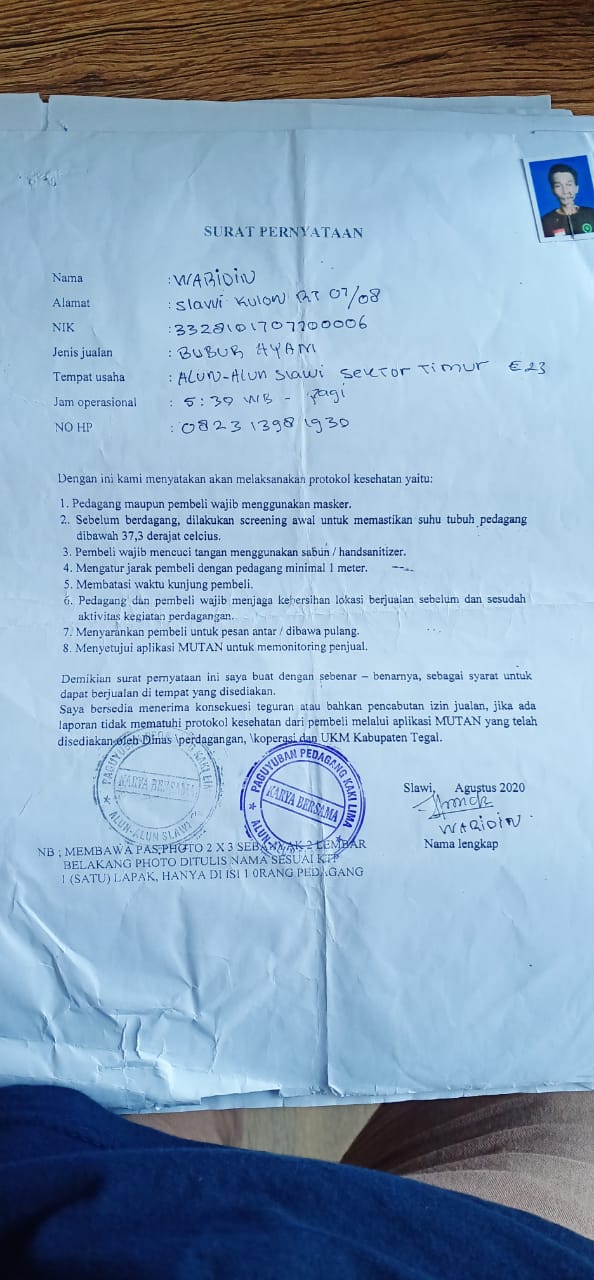 SURAT PERNYATAAN
Nama : WARIDIN
Alamat : Slawi Kulon RT 07/08
NIK : 3328101707700006
Jenis jualan : BUBUR AYAM
Tempat usaha : ALUN-ALUN Slawi Sektor Timur E23
Jam operasional : 5:30 WB - Pagi
NO HP : 082313981930
Dengan ini kami menyatakan akan melaksanakan protokol kesehatan yaitu:
1. Pedagang maupun pembeli wajib menggunakan masker.
2. Sebelum berdagang, dilakukan screening awal untuk memastikan suhu tubuh pedagang
dibawah 37,3 derajat celcius.
3. Pembeli wajib mencuci tangan menggunakan sabun / handsanitizer.
4. Mengatur jarak pembeli dengan pedagang minimal 1 meter.
5. Membatasi waktu kunjung pembeli.
6. Pedagang dan pembeli wajib menjaga kebersihan lokasi berjualan sebelum dan sesudah
aktivitas kegiatan perdagangan.
7. Menyarankan pembeli untuk pesan antar / dibawa pulang.
8. Menyetujui aplikasi MUTAN untuk memonitoring penjual.
Demikian surat pernyataan ini saya buat dengan sebenar – benarnya, sebagai syarat untuk
dapat berjualan di tempat yang disediakan.
Saya bersedia menerima konsekuesi teguran atau bahkan pencabutan izin jualan, jika ada
laporan tidak mematuhi protokol kesehatan dari pembeli melalui aplikasi MUTAN yang telah
disediakan oleh Dinas \perdagangan, \koperasi dan UKM Kabupaten Tegal.
PAGUYUBAN PEDAGANG KAKI LIMA
KARYA BERSAMA
ALUN-ALUN SLAWI
PAGUYUBAN PEDAGANG KAKI LIMA
KARYA BERSAMA
ALUN-
Slawi, Agustus 2020
WARIDIN
Nama lengkap
NB ; MEMBAWA PAS PHOTO 2 X 3 SEBANYAK 2 LEMBAR
BELAKANG PHOTO DITULIS NAMA SESUAI KTP
1 (SATU) LAPAK, HANYA DI ISI 1 0RANG PEDAGANG